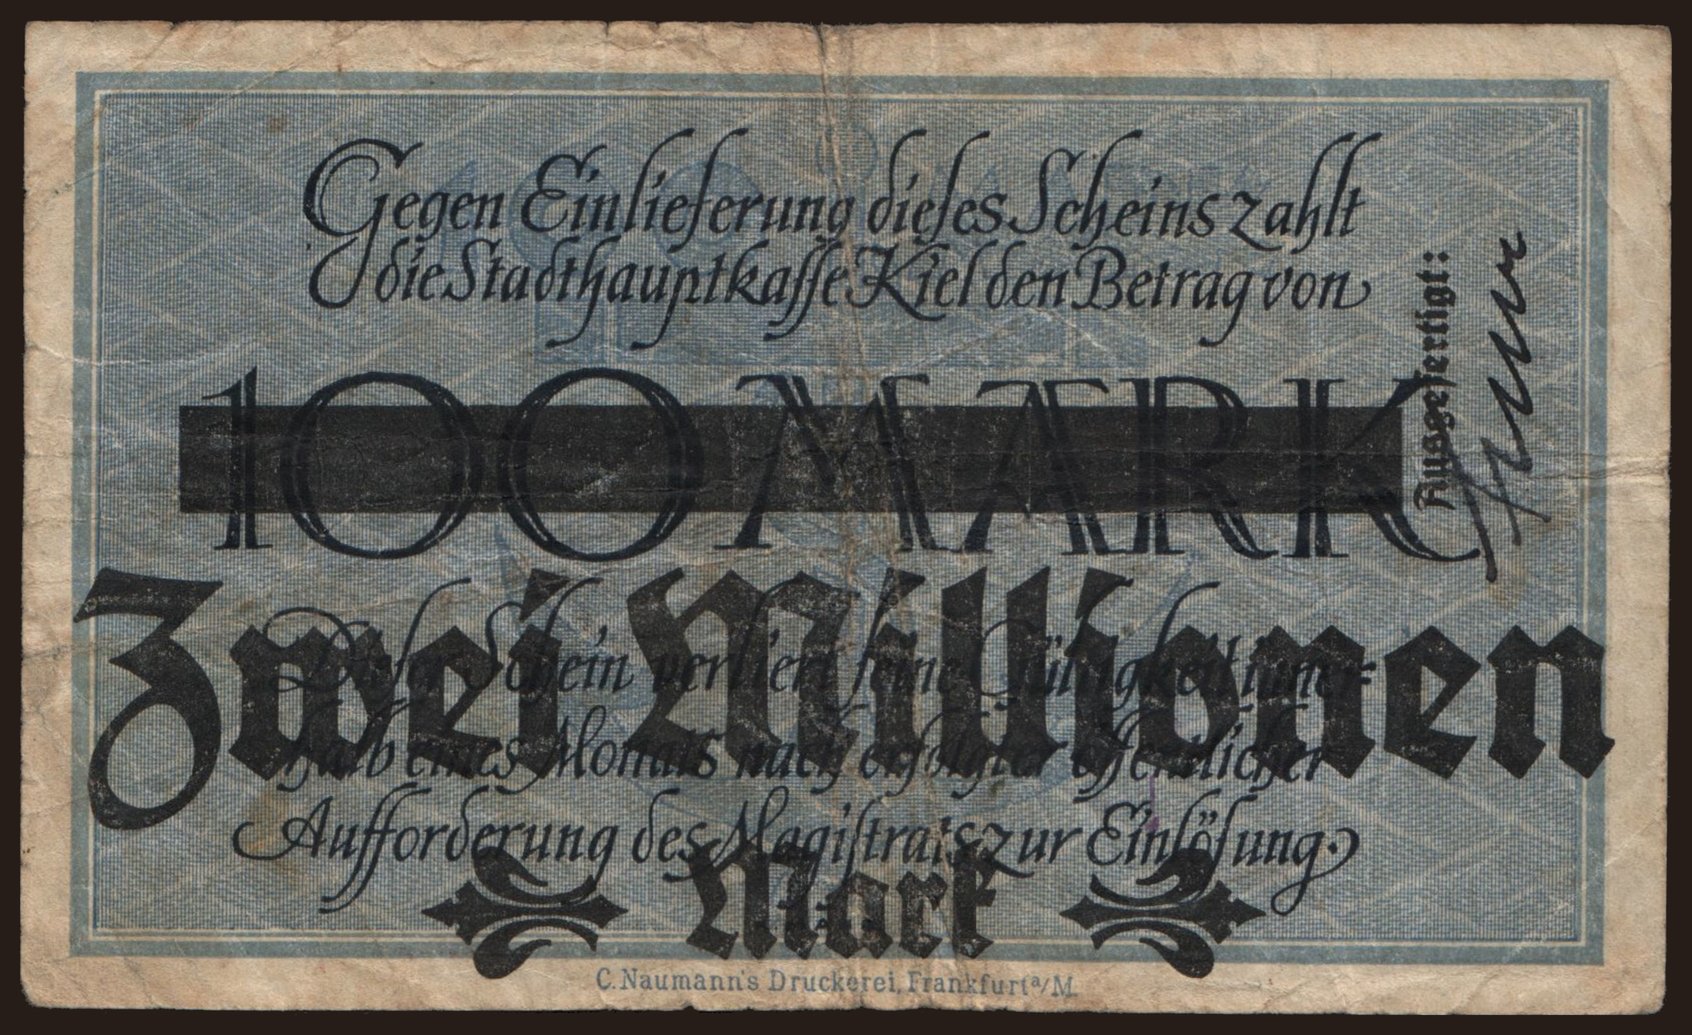 Gegen Einlieferung dieses Scheins zahlt
die Stadthauptkasse Kiel den Betrag von
100 MARK
Ausgefertigt:
Zwei Millionen
Dieser Schein verliert seine Gültigkeit inner-
halb eines Monats nach erfolgter öffentlicher
Aufforderung des Magistrats zur Einlösung.
Mark
C. Naumann's Druckerei, Frankfurt a/M.